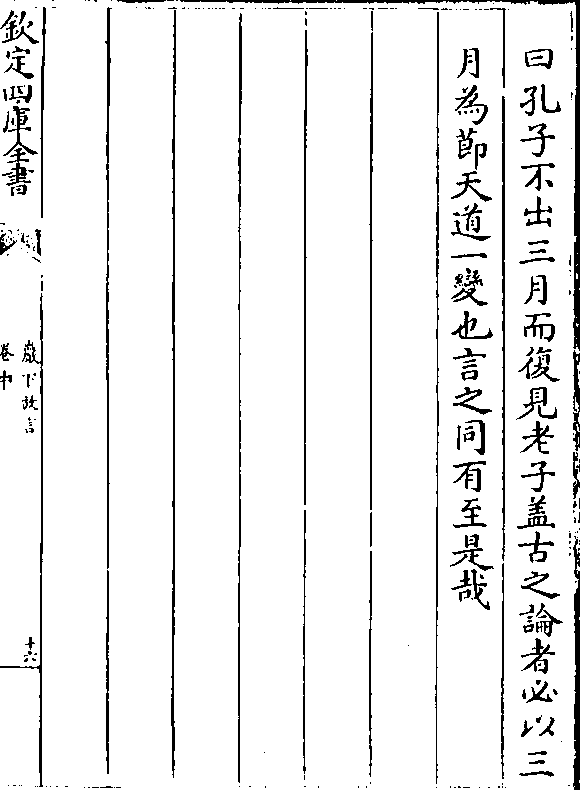 曰孔子不出三月而復見老子盖古之論者必以三
月為節天道一變也言之同有至是哉
欽定四庫全書
巖下放言
卷中
十六